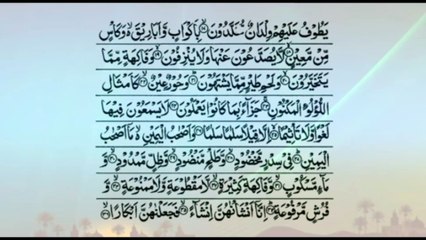 يَطُوفُ عَلَيْهِمْ وِلْدَانٌ مُّخَلَّدُوْنَ ۙ﴿۱۷﴾ بِاَكْوَابٍ وَّاَبَارِيْقَ ۙ۬ وَكَاْسٍ
مِّنْ مَّعِيْنٍ ۙ﴿۱۸﴾ لَّا يُصَدَّعُوْنَ عَنْهَا وَلَا يُنْزِفُوْنَ ۙ﴿۱۹﴾ وَفَاكِهَةٍ مِّمَّا
يَتَخَيَّرُوْنَ ۙ﴿۲۰﴾ وَلَحْمِ طَيْرٍ مِّمَّا يَشْتَهُوْنَ ؕ﴿۲۱﴾ وَحُوْرٌ عِيْنٌ ۙ﴿۲۲﴾ كَاَمْثَالِ
اللُّؤْلُؤِ الْمَكْنُوْنِ ۚ﴿۲۳﴾ جَزَآءًۢ بِمَا كَانُوْا يَعْمَلُوْنَ ﴿۲۴﴾ لَا يَسْمَعُوْنَ فِيْهَا
لَغْوًا وَّلَا تَاْثِيْمًا ۙ﴿۲۵﴾ اِلَّا قِيْلًا سَلٰمًا سَلٰمًا ﴿۲۶﴾ وَاَصْحٰبُ الْيَمِيْنِ ۙ۬ مَاۤ اَصْحٰبُ
الْيَمِيْنِ ؕ﴿۲۷﴾ فِيْ سِدْرٍ مَّخْضُوْدٍ ۙ﴿۲۸﴾ وَّطَلْحٍ مَّنْضُوْدٍ ۙ﴿۲۹﴾ وَّظِلٍّ مَّمْدُوْدٍ ۙ﴿۳۰﴾ وَّ
مَآءٍ مَّسْكُوْبٍ ۙ﴿۳۱﴾ وَّفَاكِهَةٍ كَثِيْرَةٍ ۙ﴿۳۲﴾ لَّا مَقْطُوْعَةٍ وَّلَا مَمْنُوْعَةٍ ۙ﴿۳۳﴾ وَّ
فُرُشٍ مَّرْفُوْعَةٍ ؕ﴿۳۴﴾ اِنَّاۤ اَنْشَاْنٰهُنَّ اِنْشَآءً ۙ﴿۳۵﴾ فَجَعَلْنٰهُنَّ اَبْكَارًا ۙ﴿۳۶﴾